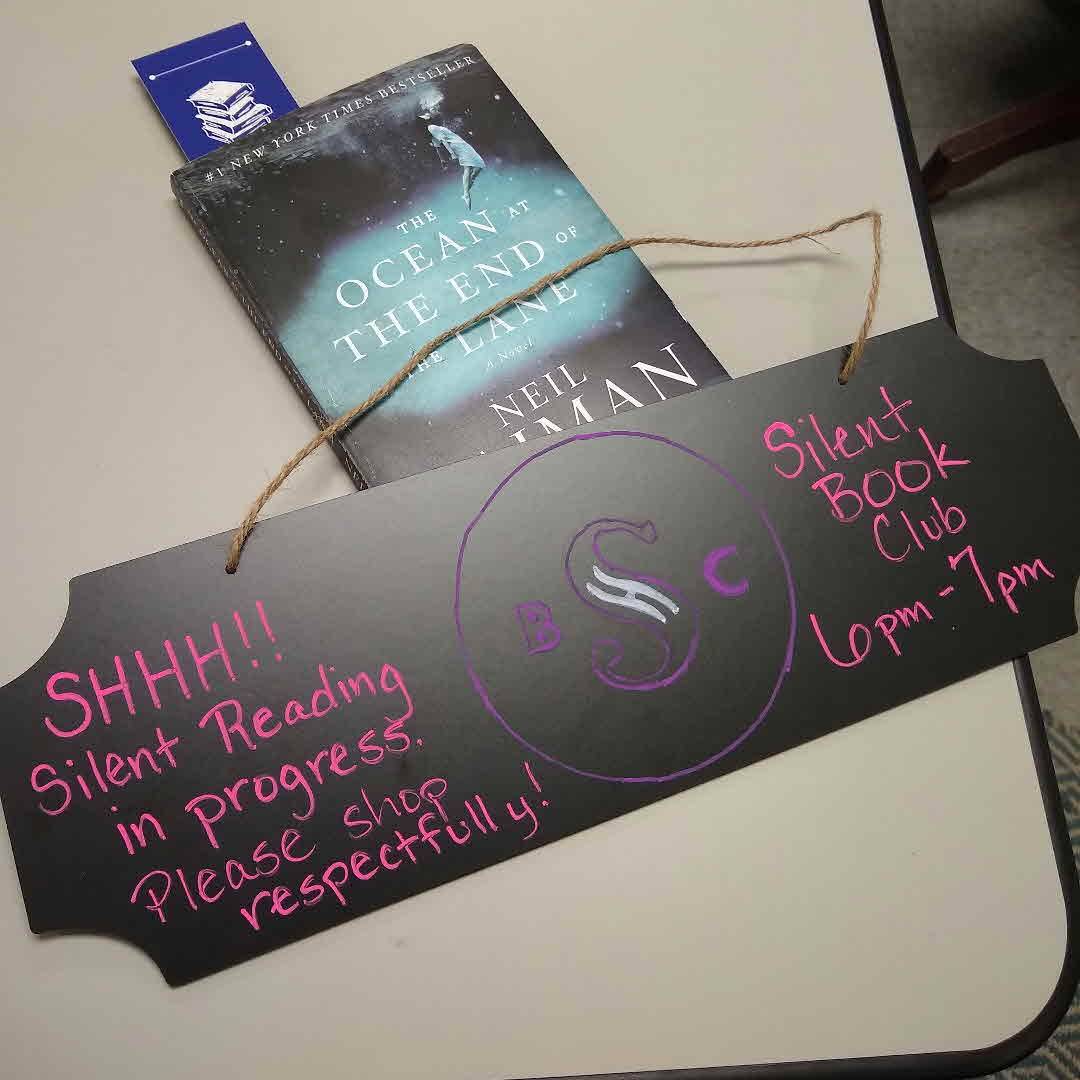 #1 NEW YORK TIMES BESTSELLER
THE
OCEAN AT
THE END OF
THE LANE
A Novel
NEIL
SHHH!!
Silent Reading
in progress.
Please shop
respectfully!
B S C
Silent
Book
Club
6pm-7pm